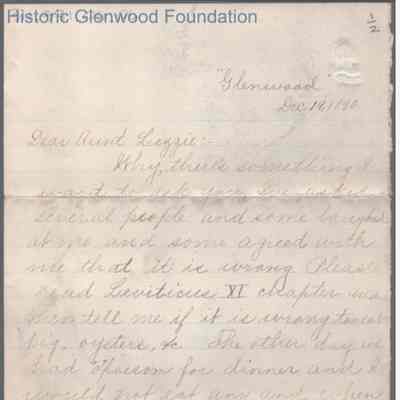 Historic Glenwood Foundation
1/2
"Glenwood"
Dec 19/90
Dear Aunt Lizzie:-
Why, there's something I
want to ask you I've asked
several people and some laughed
at me and some agreed with
me that it is wrong. Please
read Leviticus XI chapter and
then tell me if it is wrong to eat
pig, oysters, &c. The other day we
had opossum for dinner and I
would not eat any and when